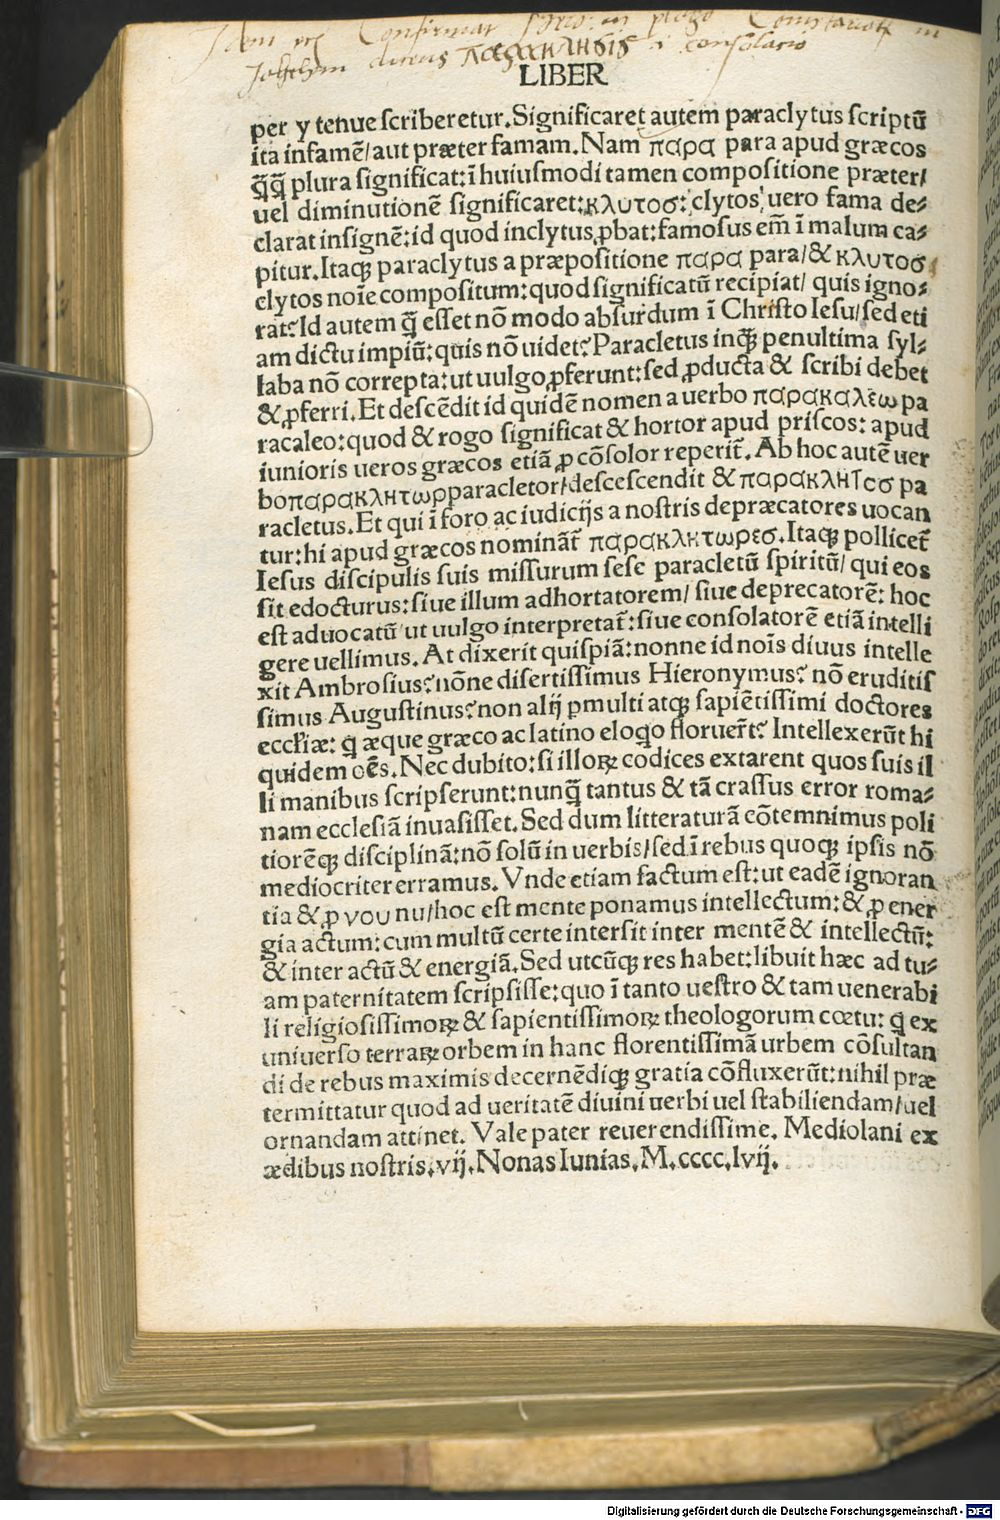 Confirmat
dicens παρακλησις i consolatio
LIBER
per y tenue scriberetur. Significaret autem paraclytus scriptū
ita infamē/ aut præter famam. Nam παρα para apud græcos
q̄q̄ plura significat: ī huiusmodi tamen compositione præter/
uel diminutionē significaret: κλυτοσ: clytos, uero fama de⸗
clarat insignē: id quod inclytus ꝓbat: famosus em̄ ī malum ca⸗
pitur. Itaqꝫ paraclytus a præpositione παρα para/ & κλυτοσ
clytos noīe compositum: quod significatū recipiat/ quis igno⸗
rat? Id autem q̄ esset nō modo absurdum ī Christo Iesu/ sed eti
am dictu impiū: quis nō uidet? Paracletus inqꝫ penultima syl⸗
laba nō correpta: ut uulgo ꝓferunt: sed ꝓducta & scribi debet
& ꝓferri. Et descēdit id quidē nomen a uerbo παρακαλεω pa
racaleo: quod & rogo significat & hortor apud priscos: apud
iunioris ueros græcos etiā ꝓ cōsolor reperit̄. Ab hoc autē uer
bo παρακλητωρ paracletor/ descescendit & παρακλητοσ pa
racletus. Et qui ī foro ac iudicijs a nostris depræcatores uocan
tur: hi apud græcos nomināt̄ παρακλητωρεσ. Itaqꝫ pollicet̄
Iesus discipulis suis missurum sese paracletū spiritū/ qui eos
sit edocturus: siue illum adhortatorem/ siue deprecatorē: hoc
est aduocatū ut uulgo interpretat̄: siue consolatorē etiā intelli
gere uellimus. At dixerit quispiā: nonne id noīs diuus intelle
xit Ambrosius? nōne disertissimus Hieronymus? nō eruditis
simus Augustinus? non alij ꝑmulti atqꝫ sapiētissimi doctores
eccłiæ: q̄ æque græco ac latino eloqo floruer̄t? Intellexerūt hi
quidem oēs. Nec dubito: si illoꝝ codices extarent quos suis il
li manibus scripserunt: nunq̄ tantus & tā crassus error roma⸗
nam ecclesiā inuasisset. Sed dum litteraturā cōtemnimus poli
tiorēqꝫ disciplinā: nō solū in uerbis/ sed ī rebus quoqꝫ ipsis nō
mediocriter erramus. Vnde etiam factum est: ut eadē ignoran
tia & ꝓ νου nu/ hoc est mente ponamus intellectum: & ꝓ ener
gia actum: cum multū certe intersit inter mentē & intellectū:
& inter actū & energiā. Sed utcūqꝫ res habet: libuit hæc ad tu⸗
am paternitatem scripsisse: quo ī tanto uestro & tam uenerabi
li religiosissimoꝝ & sapientissimoꝝ theologorum cœtu: q̄ ex
uniuerso terraꝝ orbem in hanc florentissimā urbem cōsultan
di de rebus maximis decernēdiqꝫ gratia cōfluxerūt: nihil præ
termittatur quod ad ueritatē diuini uerbi uel stabiliendam/ uel
ornandam attinet. Vale pater reuerendissime. Mediolani ex
ædibus nostris. vij. Nonas Iunias. M. cccc. lvij.
Digitalisierung gefördert durch die Deutsche Forschungsgemeinschaft - DFG